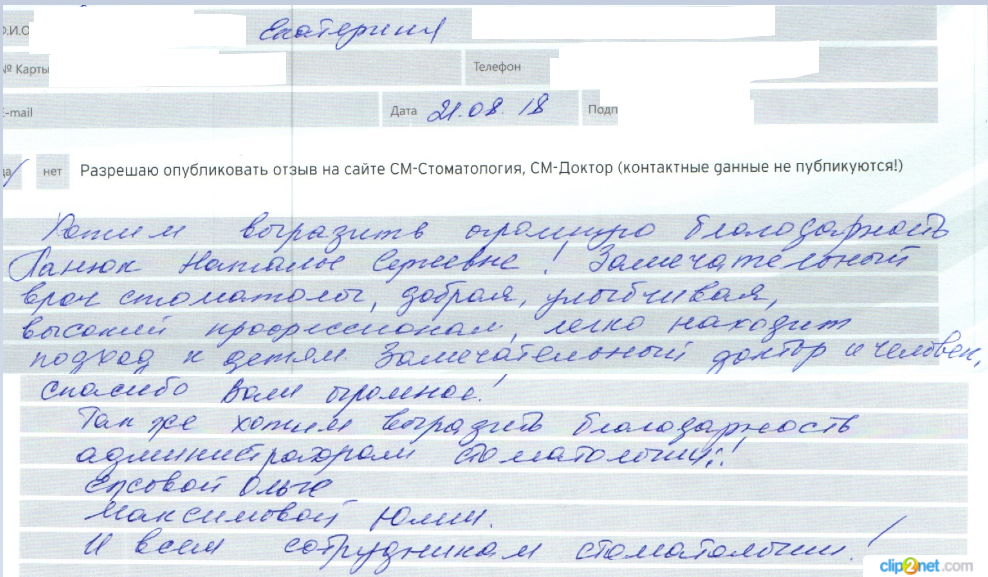 Ф.И.О Екатерина
№ Карты Телефон
E-mail Дата 21.08.18 Подп
да нет Разрешаю опубликовать отзыв на сайте СМ-Стоматология, СМ-Доктор (контактные данные не публикуются!)
Хотим выразить огромную благодарность
Панюк Наталье Сергеевне! Замечательный
врач стоматолог, добрая, улыбчивая,
высокий профессионал, легко находит
подход к детям Замечательный доктор и человек,
спасибо Вам огромное!
Так же хотим выразить благодарность
администраторам стоматологии:!
Ольге
Максимовой Юлии.
И всем сотрудникам стоматологии!
clip2net.com